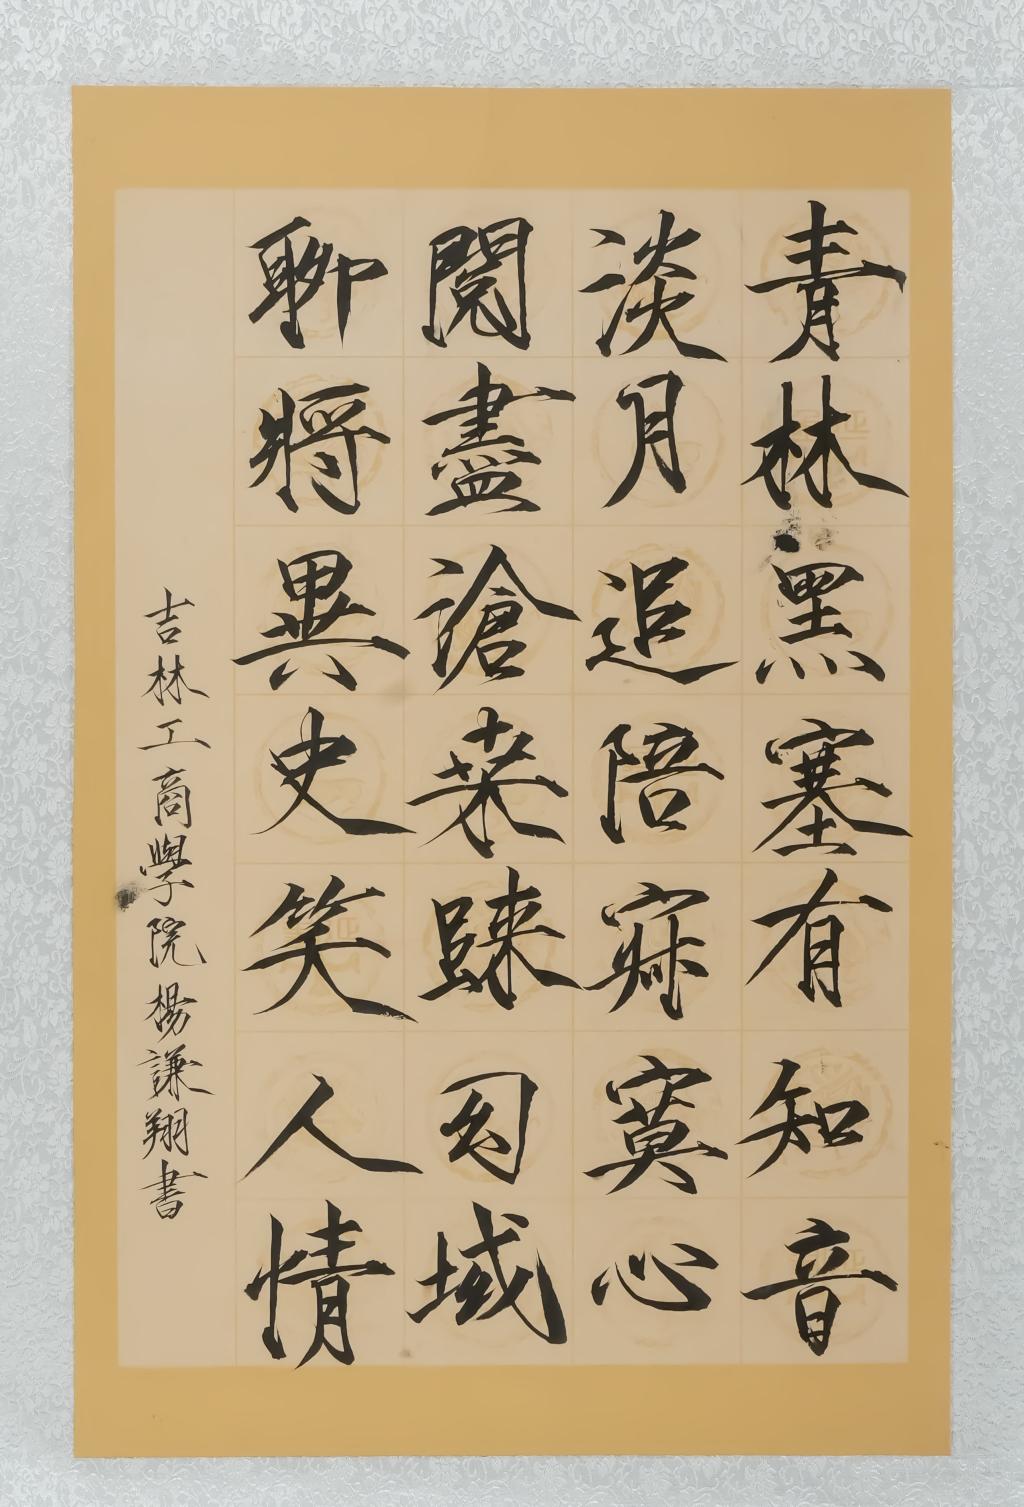 青林黑塞有知音
淡月追陪寂寞心
閱盡滄桒踈幻域
聊將異史笑人情
吉林工商學院楊謙翔書